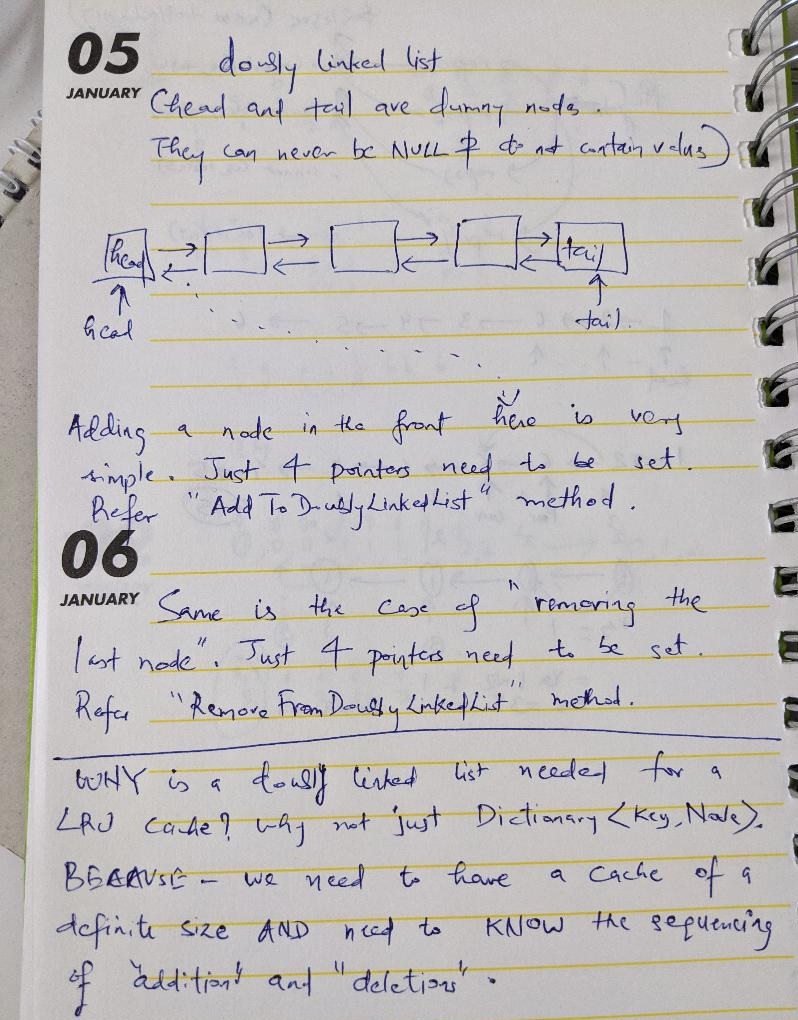 05
JANUARY
dously linked list
(head and tail are dummy nodes.
They can never be NULL & do not contain values)
head
tail
head
tail.
Adding a node in the front here is very
simple. Just 4 pointers need to be set.
Refer "Add To DoublyLinkedList" method.
06
JANUARY
Same is the case of "removing the
last node". Just 4 pointers need to be set.
Refer "Remove From Doubly LinkedList" method.
WHY is a doubly linked list needed for a
LRU cache? why not just Dictionary <Key, Node>.
BECAUSE - we need to have a cache of a
definite size AND need to KNOW the sequencing
of "addition" and "deletions".